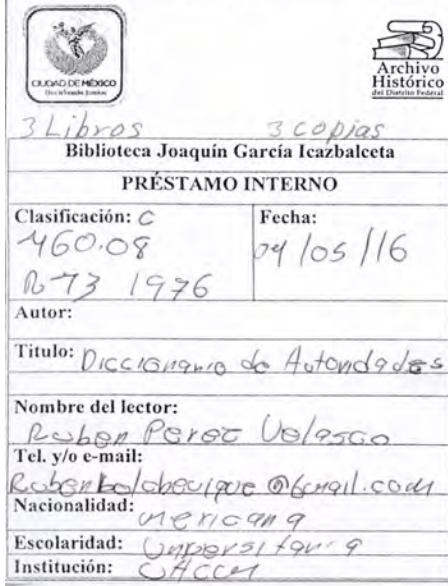 CIUDAD DE MÉXICO
Decidiendo Juntos
Archivo
Histórico
del Distrito Federal
3 Libros 3 copias
Biblioteca Joaquín García Icazbalceta
PRÉSTAMO INTERNO
Clasificación: C
Fecha:
460.08
04/05/16
R73 1976
Autor:
Titulo: Diccionario de Autoridades
Nombre del lector:
Ruben Perez Velasco
Tel. y/o e-mail:
@Gmail.com
Nacionalidad:
mexicana
Escolaridad: Universitaria
Institución: UACM